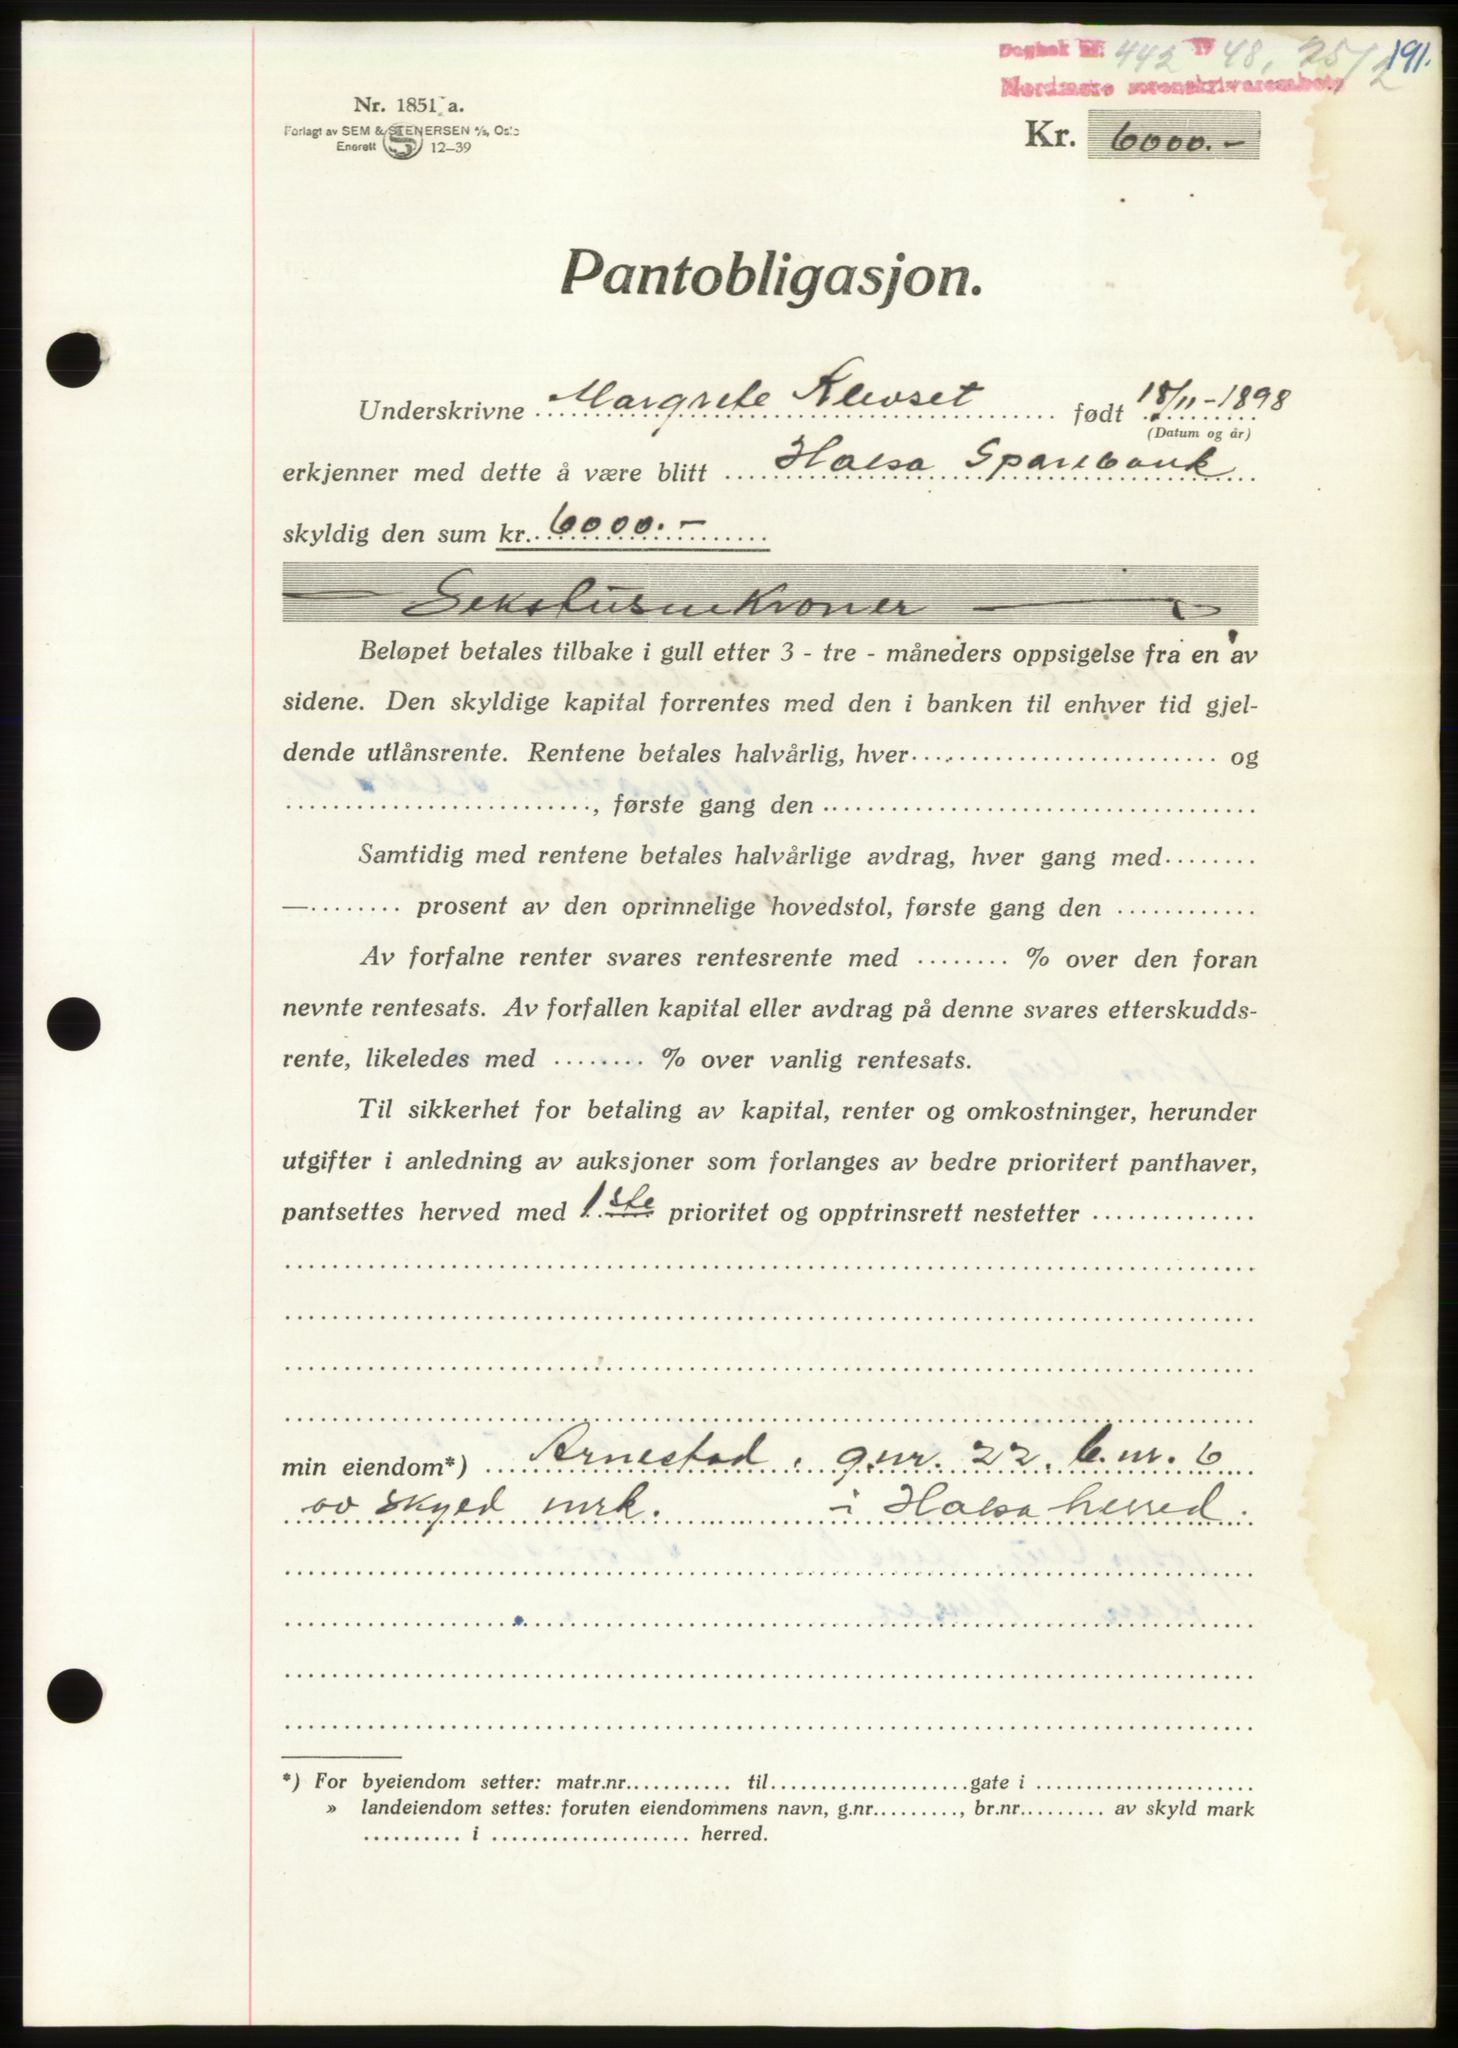 Dagbok nr. 442 19 48, 25/2 191.
Nordmøre sorenskrivarembete
Nr. 1851 a.
Forlagt av SEM & STENERSEN A/S, Oslo
Enerett S 12-39
Kr. 6000.-
Pantobligasjon.
Underskrivne Margrete Klevset født 18/11-1898
(Datum og år)
erkjenner med dette å være blitt Halsa Sparebank
skyldig den sum kr. 6000.-
— Sekstusenkroner —
Beløpet betales tilbake i gull etter 3 - tre - måneders oppsigelse fra en av
sidene. Den skyldige kapital forrentes med den i banken til enhver tid gjel-
dende utlånsrente. Rentene betales halvårlig, hver .......... og
.........., første gang den ..........
Samtidig med rentene betales halvårlige avdrag, hver gang med ..........
—.......... prosent av den oprinnelige hovedstol, første gang den ..........
Av forfalne renter svares rentesrente med ........ % over den foran
nevnte rentesats. Av forfallen kapital eller avdrag på denne svares etterskudds-
rente, likeledes med ........ % over vanlig rentesats.
Til sikkerhet for betaling av kapital, renter og omkostninger, herunder
utgifter i anledning av auksjoner som forlanges av bedre prioritert panthaver,
pantsettes herved med 1ste prioritet og opptrinsrett nestetter ..........
min eiendom*) Arnestad, g.nr. 22, b.nr. 6
av skyld mrk. i Halsa herred.
*) For byeiendom setter: matr.nr.......... til..........gate i ..........
» landeiendom settes: foruten eiendommens navn, g.nr.........., br.nr.......... av skyld mark
.......... i .......... herred.